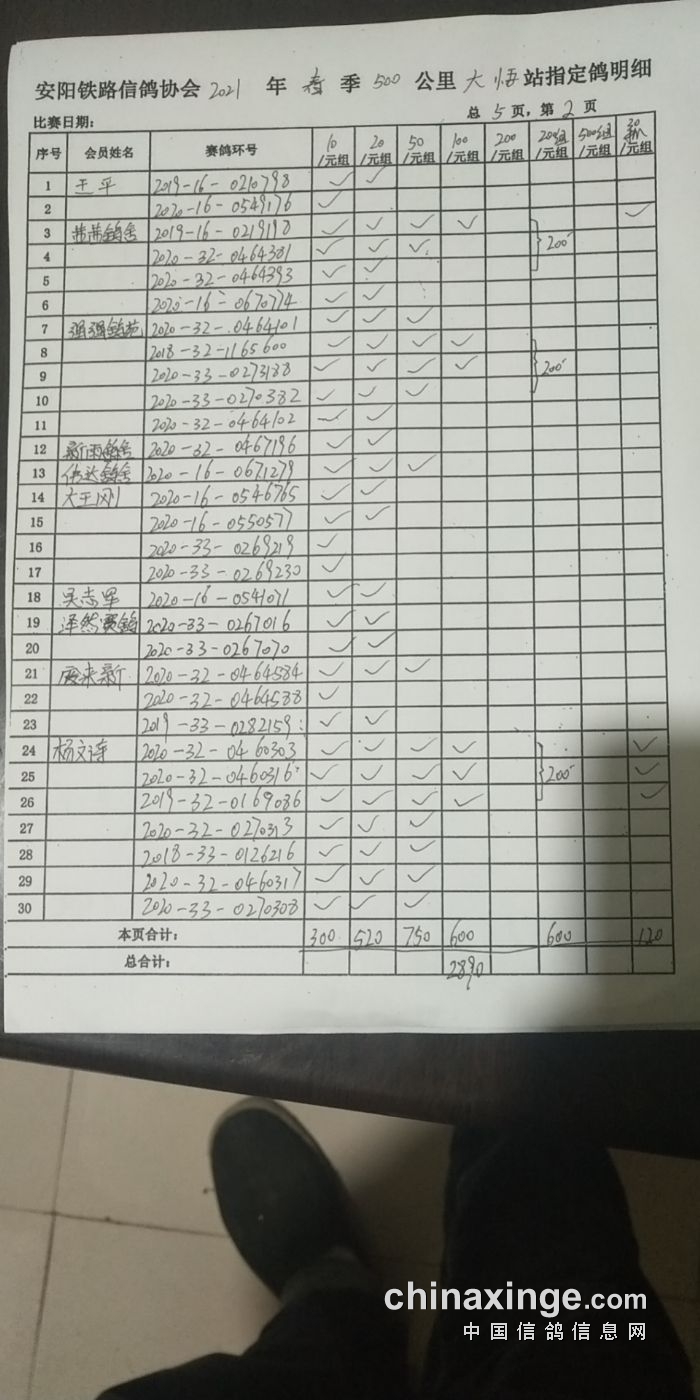 安阳铁路信鸽协会 2021 年 春 季 500 公里 大悟 站指定鸽明细
比赛日期： 总 5 页，第 2 页
序号 会员姓名 赛鸽环号 10/元组 20/元组 50/元组 100/元组 200/元组 200组/元组 500组/元组 30/元组
1 王平 2019-16-0210798 ✓ ✓
2 2020-16-0549176 ✓
3 2019-16-0219198 ✓ ✓ ✓ ✓ ✓
4 2020-32-0464381 ✓ ✓ ✓ 200
5 2020-32-0464393 ✓ ✓
6 2020-16-0670774 ✓ ✓
7 强强鸽苑 2020-32-0464101 ✓ ✓ ✓
8 2018-32-1165600 ✓ ✓ ✓ ✓
9 2020-33-0273188 ✓ ✓ ✓ ✓ 200
10 2020-33-0270382 ✓ ✓ ✓
11 2020-32-0464102 ✓ ✓
12 新雨鸽舍 2020-32-0467196 ✓ ✓
13 伟达鸽舍 2020-16-0671279 ✓ ✓ ✓
14 大王刚 2020-16-0546765 ✓ ✓
15 2020-16-0550577 ✓ ✓
16 2020-33-0269219 ✓
17 2020-33-0269230 ✓
18 吴志军 2020-16-0541071 ✓ ✓
19 泽然赛鸽 2020-33-0267016 ✓ ✓
20 2020-33-0267070 ✓ ✓
21 2020-32-0464584 ✓ ✓ ✓
22 2020-32-0464588 ✓
23 2019-33-0282159 ✓ ✓
24 2020-32-0460303 ✓ ✓ ✓ ✓ ✓
25 2020-32-0460316 ✓ ✓ ✓ ✓ 200 ✓
26 2019-32-0169086 ✓ ✓ ✓ ✓ ✓
27 2020-32-0270313 ✓ ✓ ✓
28 2018-33-0126216 ✓ ✓ ✓
29 2020-32-0460317 ✓ ✓ ✓
30 2020-33-0270308 ✓ ✓ ✓
本页合计： 300 520 750 600 600 120
总合计： 2890
chinaxinge.com
中国信鸽信息网